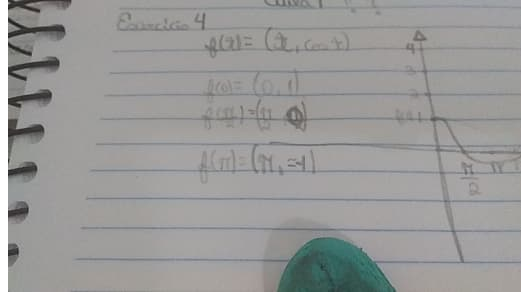 Exercício 4
f(x) = (x, cos x)
f(0) = (0, 1)
f(π/2) = (π/2, 0)
f(π) = (π, -1)
4
3
2
1
π/2
π